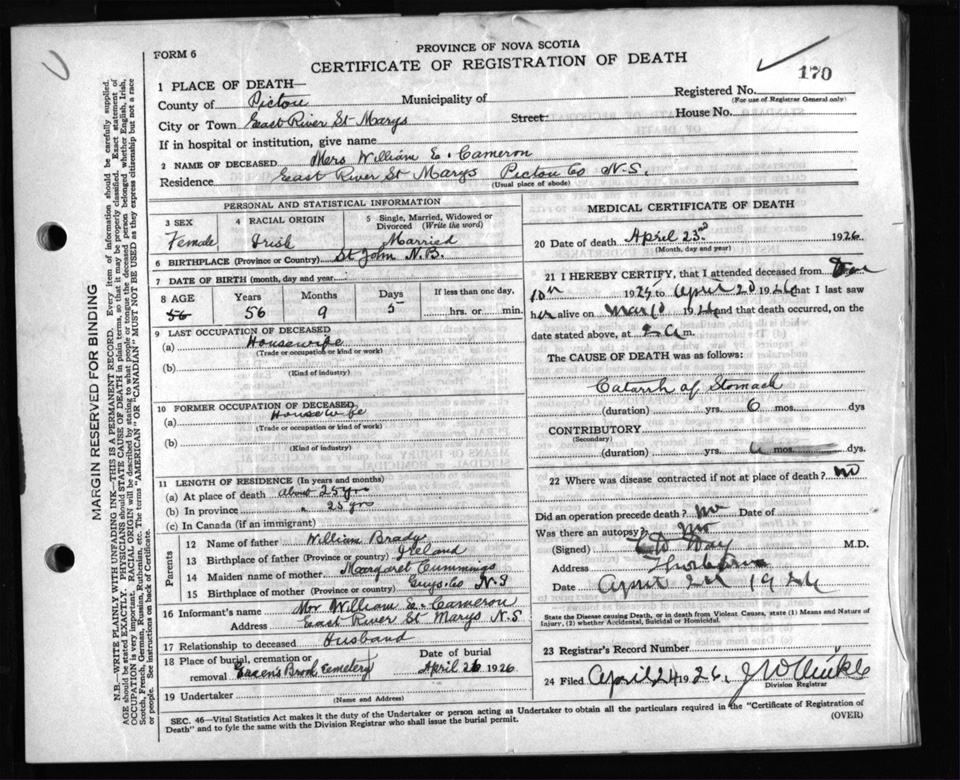 PROVINCE OF NOVA SCOTIA
FORM 6
CERTIFICATE OF REGISTRATION OF DEATH
170
1 PLACE OF DEATH—
County of Pictou Municipality of Registered No.
(For use of Registrar General only)
City or Town East River St Marys Street: House No.
If in hospital or institution, give name
2 NAME OF DECEASED Mrs William E. Cameron
Residence East River St Marys Pictou Co N.S.
(Usual place of abode)
PERSONAL AND STATISTICAL INFORMATION
3 SEX 4 RACIAL ORIGIN 5 Single, Married, Widowed or
Divorced (Write the word)
Female Irish Married
6 BIRTHPLACE (Province or Country) St John N.B.
7 DATE OF BIRTH (month, day and year)
8 AGE Years Months Days If less than one day,
56 56 9 5 hrs. or min.
9 LAST OCCUPATION OF DECEASED
(a) Housewife
(Trade or occupation or kind of work)
(b)
(Kind of industry)
10 FORMER OCCUPATION OF DECEASED
(a) Housewife
(Trade or occupation or kind of work)
(b)
(Kind of industry)
11 LENGTH OF RESIDENCE (In years and months)
(a) At place of death about 25 yrs
(b) In province " 25 yrs
(c) In Canada (if an immigrant)
Parents
12 Name of father William Brady
13 Birthplace of father (Province or country) Ireland
14 Maiden name of mother Margaret Cummings
15 Birthplace of mother (Province or country) Guys. Co N S
16 Informant's name Mr William E. Cameron
Address East River St Marys N.S
17 Relationship to deceased Husband
18 Place of burial, cremation or Date of burial
removal Brook Cemetery April 26 1926
19 Undertaker
(Name and Address)
MEDICAL CERTIFICATE OF DEATH
20 Date of death April 23rd 1926
(Month, day and year)
21 I HEREBY CERTIFY, that I attended deceased from
10th 1925 to April 20 1926 that I last saw
her alive on 1926 and that death occurred, on the
date stated above, at 2 a m.
The CAUSE OF DEATH was as follows:
Catarrh of Stomach
(duration) yrs. 6 mos. dys
CONTRIBUTORY
(Secondary)
(duration) yrs. mos. dys.
22 Where was disease contracted if not at place of death? no
Did an operation precede death? no Date of
Was there an autopsy? no
(Signed) M.D.
Address
Date April 24 1926
State the Disease causing Death, or in death from Violent Causes, state (1) Means and Nature of
Injury, (2) whether Accidental, Suicidal or Homicidal.
23 Registrar's Record Number
24 Filed April 24 1926.
Division Registrar
SEC. 46—Vital Statistics Act makes it the duty of the Undertaker or person acting as Undertaker to obtain all the particulars required in the "Certificate of Registration of
Death" and to fyle the same with the Division Registrar who shall issue the burial permit.
(OVER)
MARGIN RESERVED FOR BINDING
N.B.—WRITE PLAINLY WITH UNFADING INK—THIS IS A PERMANENT RECORD. Every item of information should be carefully supplied.
AGE should be stated EXACTLY. PHYSICIANS should STATE CAUSE OF DEATH in plain terms, so that it may be properly classified. Exact statement of
OCCUPATION is very important. RACIAL ORIGIN will be described by stating to what people or tongue the deceased person belonged whether English, Irish,
Scotch, French, German, Russian, Ruthenian, etc. The terms "AMERICAN" OR "CANADIAN" MUST NOT BE USED as they express citizenship but not a race
or people. See instructions on back of Certificate.